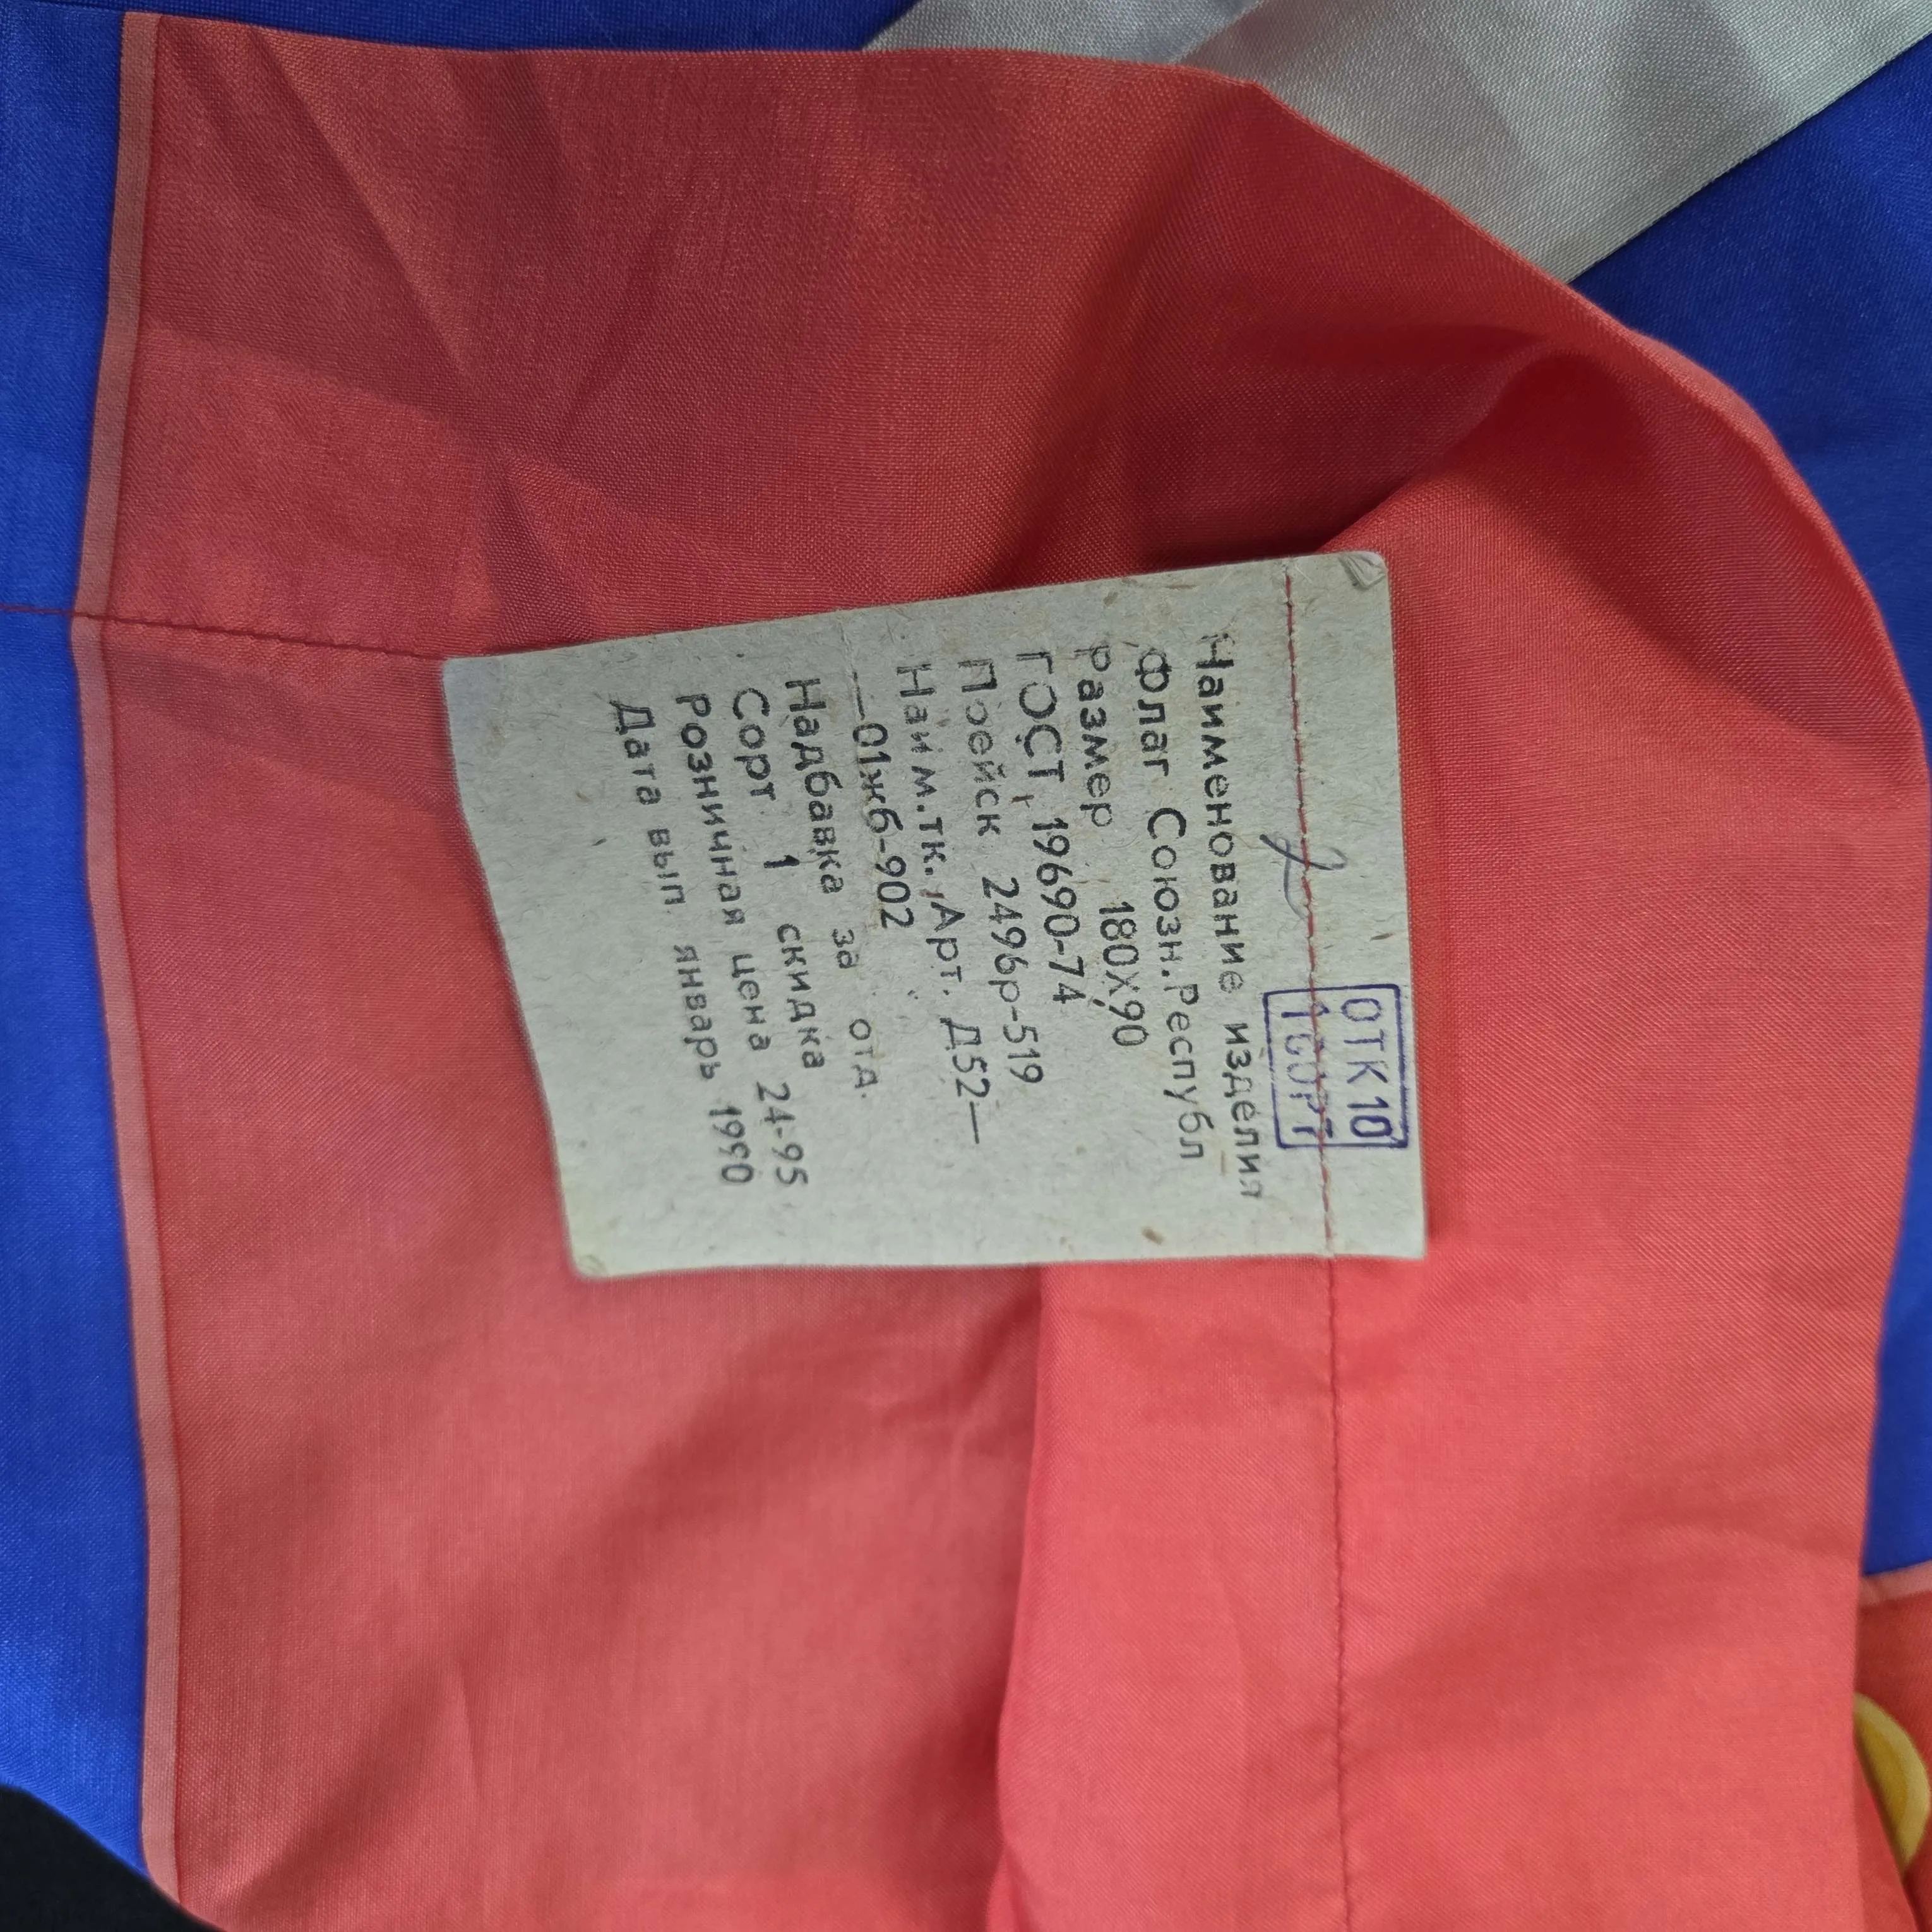 ОТК 10
1 СОРТ
2
Наименование изделия
Флаг Союзн.Республ
Размер 180Х90
ГОСТ 19690-74
Прейск 249бр-519
Наим.тк.,Арт. Д52—
—01жб-902
Надбавка за отд.
Сорт 1 скидка
Розничная цена 24-95
Дата вып. январь 1990